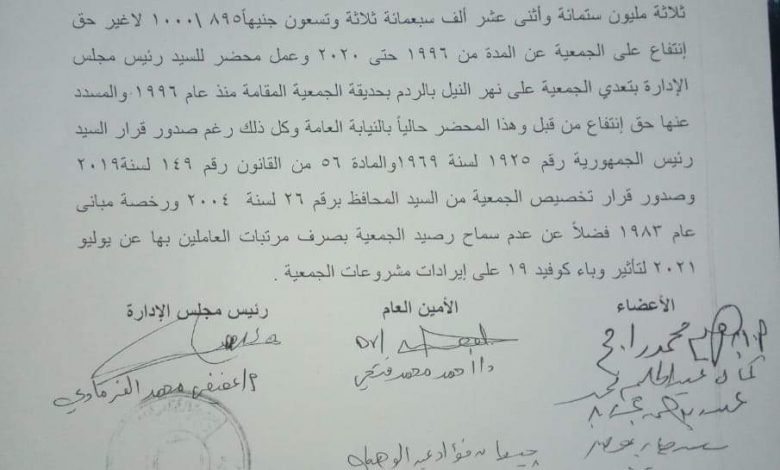 ثلاثة مليون ستمائة وأثنى عشر ألف سبعمائة ثلاثة وتسعون جنيهاً٨٩٥ \١٠٠٠ لاغير حق
إنتفاع على الجمعية عن المدة من ١٩٩٦ حتى ٢٠٢٠ وعمل محضر للسيد رئيس مجلس
الإدارة بتعدي الجمعية على نهر النيل بالردم بحديقة الجمعية المقامة منذ عام ١٩٩٦ والمسدد
عنها حق إنتفاع من قبل وهذا المحضر حالياً بالنيابة العامة وكل ذلك رغم صدور قرار السيد
رئيس الجمهورية رقم ١٩٢٥ لسنة ١٩٦٩والمادة ٥٦ من القانون رقم ١٤٩ لسنة٢٠١٩
وصدور قرار تخصيص الجمعية من السيد المحافظ برقم ٢٦ لسنة ٢٠٠٤ ورخصة مبانى
عام ١٩٨٣ فضلاً عن عدم سماح رصيد الجمعية بصرف مرتبات العاملين بها عن يوليو
٢٠٢١ لتأثير وباء كوفيد ١٩ على إيرادات مشروعات الجمعية .
الأعضاء الأمين العام رئيس مجلس الإدارة
محمد
د/ احمد محمد فتحي
محمد الفرماوي
فؤاد عبد